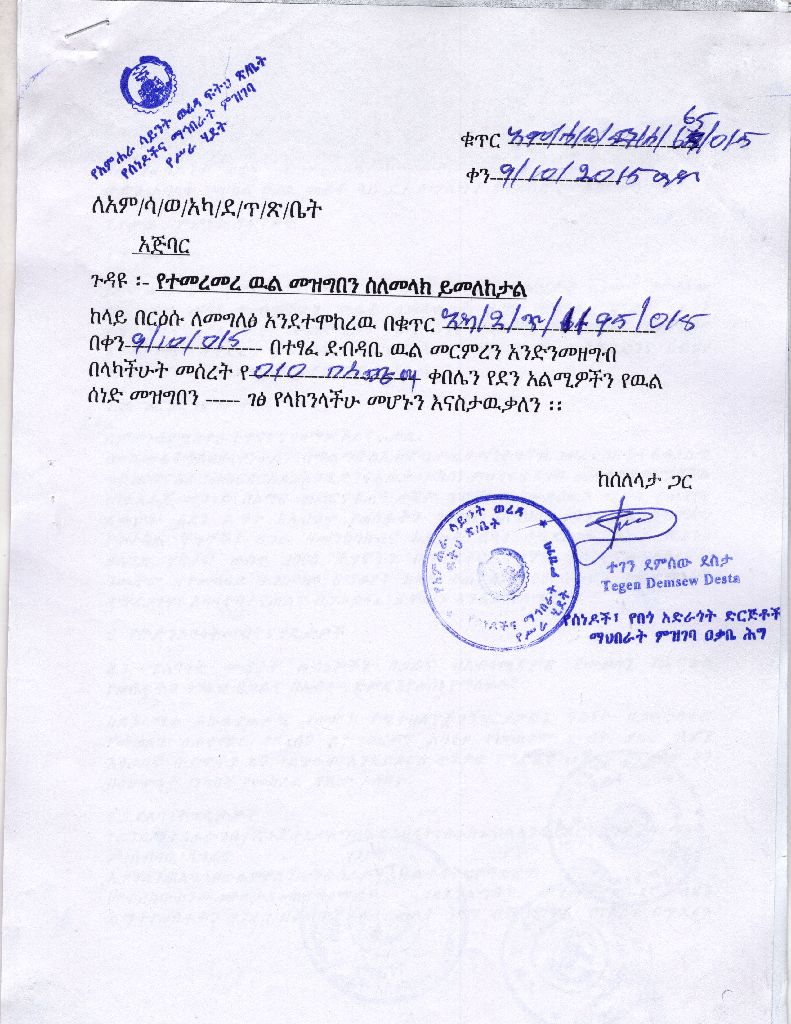 የአምሐራ ሳይንት ወረዳ ፍትህ ጽ/ቤት
የሰነዶችና ማኅበራት ምዝገባ
የሥራ ሂደት
ቁጥር /015
ቀን 9/10/2015 ዓ.ም
ለአም/ሳ/ወ/አካ/ደ/ጥ/ጽ/ቤት
አጅባር
ጉዳዩ ፡- የተመረመረ ዉል መዝግበን ስለመላክ ይመለከታል
ከላይ በርዕሱ ለመግለፅ እንደተሞከረዉ በቁጥር 95/015
በቀን 9/10/015 በተፃፈ ደብዳቤ ዉል መርምረን እንድንመዘግብ
በላካችሁት መሰረት የ 010 ቀበሌን የደን አልሚዎችን የዉል
ሰነድ መዝግበን ----- ገፅ የላክንላችሁ መሆኑን እናስታዉቃለን ፡፡
ከሰለላታ ጋር
የአምሐራ ሳይንት ወረዳ
ፍትህ ጽ/ቤት
የሰነዶችና ማኅበራት ምዝገባ
የሥራ ሂደት
ተገን ደምሰው ደስታ
Tegen Demsew Desta
የሰነዶች፣ የበጎ አድራጎት ድርጅቶች
ማህበራት ምዝገባ ዐቃቤ ሕግ